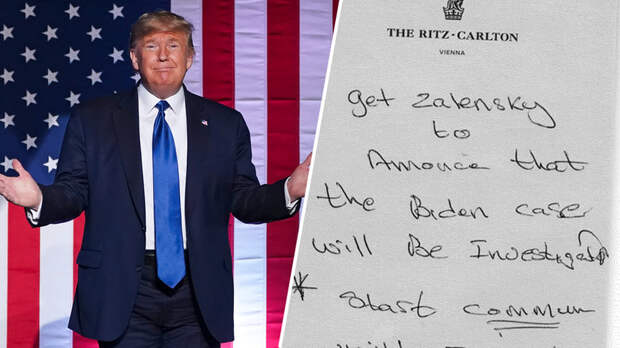 THE RITZ-CARLTON
VIENNA
get Zalensky
to
Annouce that
the Biden case
will Be Investigated
* start commun